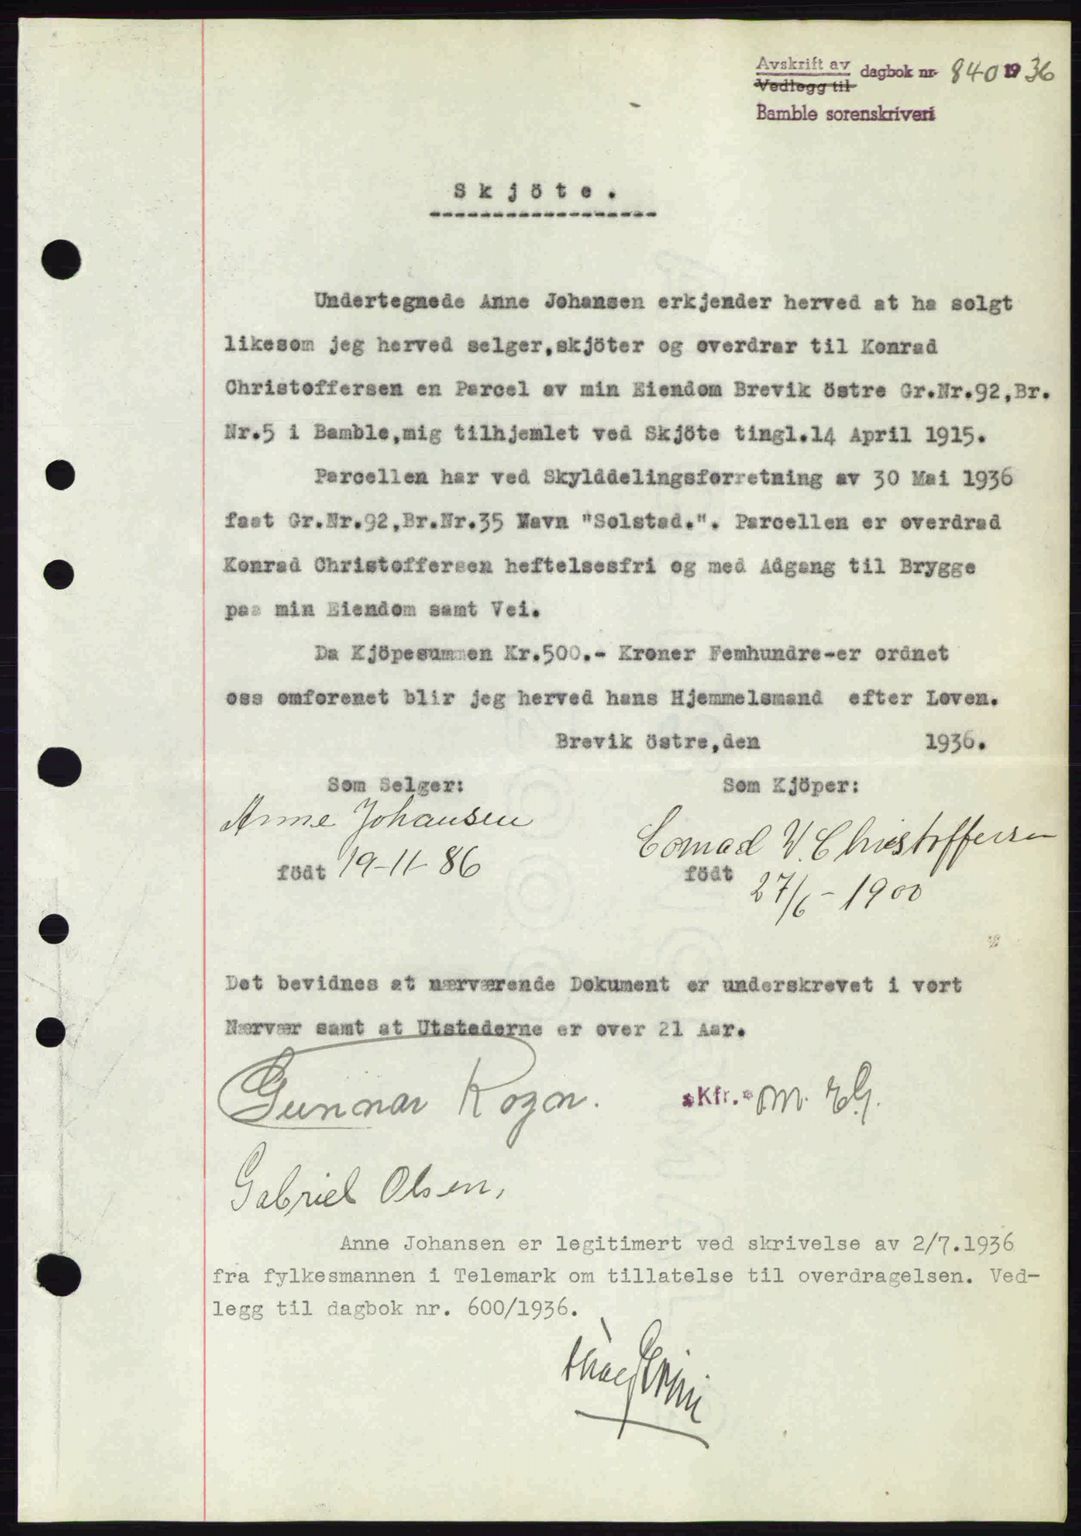 Avskrift av
Vedlegg til
dagbok nr 840 1936
Bamble sorenskriveri
Skjöte.
Undertegnede Anne Johansen erkjender herved at ha solgt
likesom jeg herved selger,skjöter og overdrar til Konrad
Christoffersen en Parcel av min Eiendom Brevik östre Gr.Nr.92,Br.
Nr.5 i Bamble,mig tilhjemlet ved Skjöte tingl.14 April 1915.
Parcellen har ved Skylddelingsforretning av 30 Mai 1936
faat Gr.Nr.92,Br.Nr.35 Navn "Solstad.". Parcellen er overdrad
Konrad Christoffersen heftelsesfri og med Adgang til Brygge
paa min Eiendom samt Vei.
Da Kjöpesummen Kr.500.- Kroner Femhundre-er ordnet
oss omforenet blir jeg herved hans Hjemmelsmand efter Loven.
Brevik östre,den 1936.
Som Selger: Som Kjöper:
Anne Johansen
Conrad W. Christoffersen
födt 19-11-86
födt 27/6-1900
Det bevidnes at nærværende Dokument er underskrevet i vort
Nærvær samt at Utstederne er over 21 Aar.
Gunnar
Kfr.
Gabriel Olsen,
Anne Johansen er legitimert ved skrivelse av 2/7.1936
fra fylkesmannen i Telemark om tillatelse til overdragelsen. Ved-
legg til dagbok nr. 600/1936.